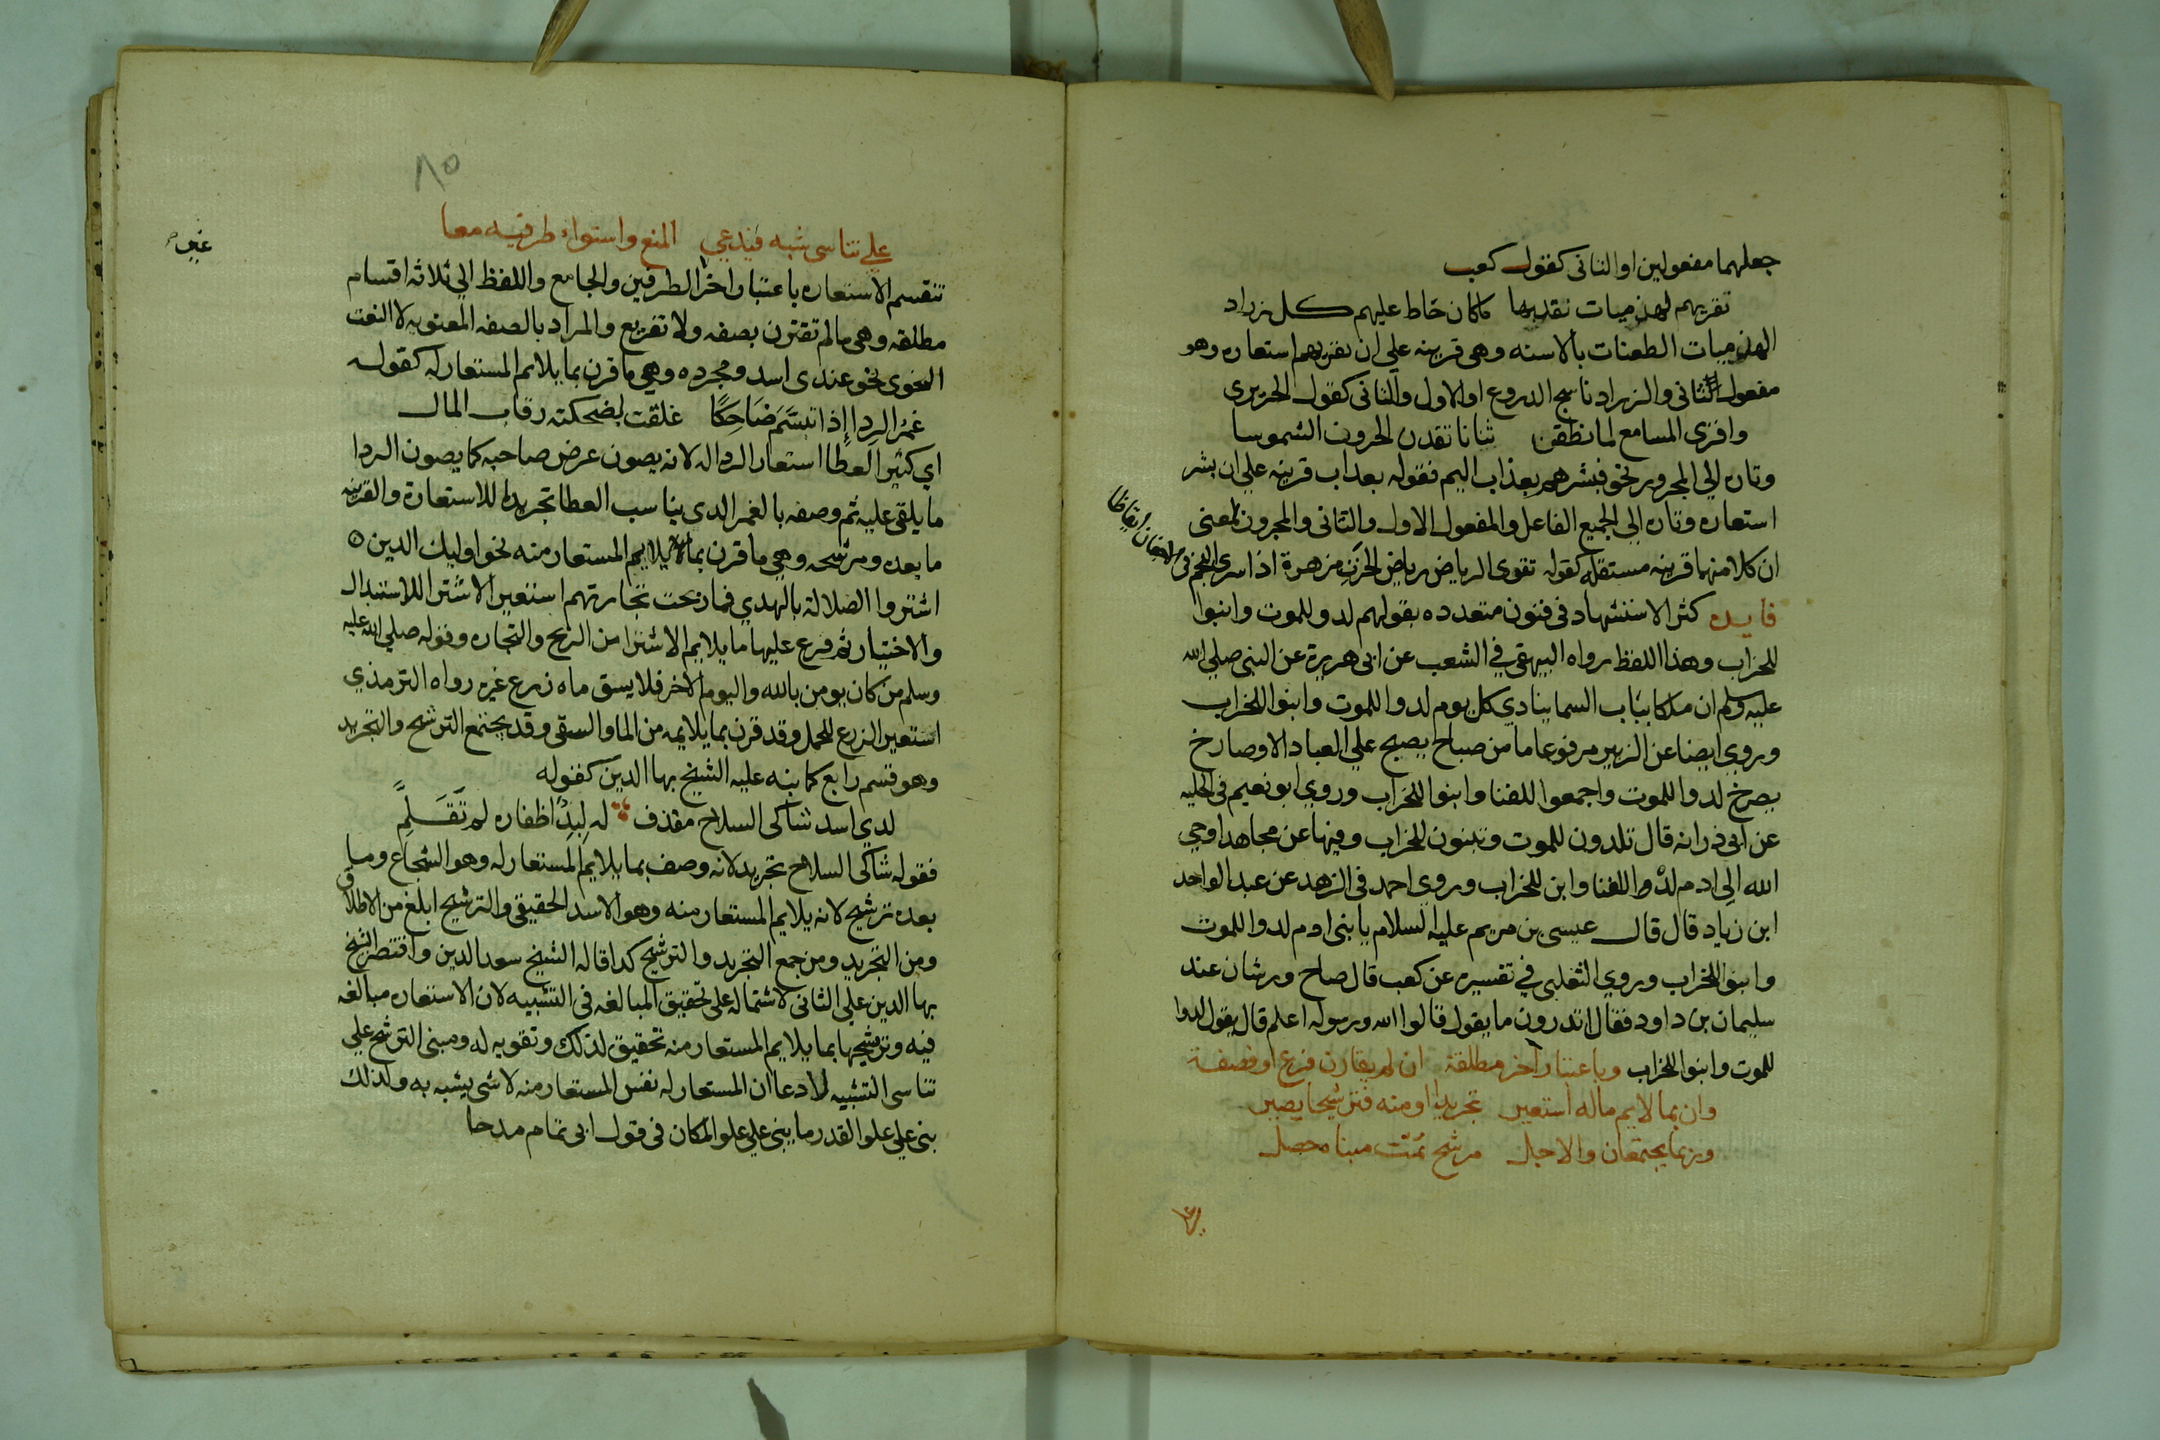 جعلهما مفعولين او الثاني كقول كعب
نقريهم لهذميات نقد بها ما كان خاط عليهم كل زراد
اللهذميات الطعنات بالاسنه وهي قرينه علي ان نقريهم استعاره وهو
مفعول الثاني والزراد ناسج الدروع او الاول والثاني كقول الحريري
واقري المسامع لما نطقن ثنانا تقدن الحرون الشموسا
وتاره الي المجرور نحو فبشرهم بعذاب اليم فقوله بعداب قرينه علي ان بشر
استعاره وتاره الي الجميع الفاعل والمفعول الاول والثاني والمجرور بمعني
ان كلا منها قرينه مستقله كقوله تقوي الرياض رياض الحزن مزهرة اذا سري النجم في الاجفان ايقاظا
فايده كثر الاستشهاد في فنون متعدده بقولهم لدو للموت وابنوا
للخراب وهذا اللفظ رواه البيهقي في الشعب عن ابي هريرة عن النبي صلي الله
عليه وسلم ان ملكا بباب السما ينادي كل يوم لدوا للموت وابنوا للخراب
وروي ايضا عن الزبير مرفوعا ما من صباح يصبح علي العباد الا وصارخ
يصرخ لدوا للموت واجمعوا للفنا وابنوا للخراب وروي ابو نعيم في الحليه
عن ابي ذر انه قال تلدون للموت وتبنون للخراب وفيها عن مجاهد اوحي
الله الي ادم لدوا للفنا وابن للخراب وروي احمد في الزهد عن عبد الواحد
ابن زياد قال قال عيسي بن مريم عليه السلام يا بني ادم لدوا للموت
وابنوا للخراب وروي الثعلبي في تفسيره عن كعب قال صاح ورشان عند
سليمان بن داود فقال اتدرون ما يقول قالوا الله ورسوله اعلم قال يقول لدوا
للموت وابنوا للخراب وباعتبار آخر مطلقة ان لم يقارن فرع او فصفة
وان بما لايم ماله استعير تجريدا او منه فترشيحا يصير
وربما يجتمعان والاجل مرشح تمت مبناه حصل
علي تناسي شبه فيدعي المنع واستواء طرفيه معا
٨٥
تنقسم الاستعاره باعتبار اخر الطرفين والجامع واللفظ الي ثلاثه اقسام
غير
مطلقه وهي ما لم تقترن بصفه ولا تفريع والمراد بالصفه المعنويه لا النعت
النحوي نحو عندي اسد ومجرده وهي ما قرن بما يلايم المستعار له كقوله
غمر الردا إذا تبسّم ضَاحِكًا غلقت لضحكته رقاب المال
اي كثير العطا استعار الردا له لانه يصون عرض صاحبه كما يصون الردا
ما يلقي عليه ثم وصفه بالغمر الذي يناسب العطا تجريدا للاستعارة والقرينه
ما بعده ومرشحه وهي ما قرن بما يلايم المستعار منه نحو اوليك الذين
اشتروا الضلالة بالهدي فما ربحت تجارتهم استعير الاشترا للاستبدال
والاختيار ثم فرع عليها ما يلايم الاشترا من الربح والتجاره وقوله صلي الله عليه
وسلم من كان يومن بالله واليوم الاخر فلا يسق ماه زرع غيره رواه الترمذي
استعير الزرع للحمل وقد قرن بما يلايمه من الما والسقي وقد يجتمع الترشيح والتجريد
وهو قسم رابع كما نبه عليه الشيخ بها الدين كقوله
لدي اسد شاكي السلاح مقذف له لبد اظفاره لم تقلم
فقوله شاكي السلاح تجريد لانه وصف بما يلايم المستعار له وهو الشجاع وما
بعده ترشيح لانه يلايم المستعار منه وهو الاسد الحقيقي والترشيح ابلغ من الاطلاق
ومن التجريد ومن جمع التجريد والترشيح كدا قاله الشيخ سعد الدين واقتصر الشيخ
بها الدين علي الثاني لاشتماله علي تحقيق المبالغه في التشبيه لان الاستعاره مبالغه
فيه وترشيحها بما يلايم المستعار منه تحقيق لذلك وتقويه له ومبني الترشيح علي
تناسي التشبيه لادعا ان المستعار له نفس المستعار منه لا شي يشبه به ولذلك
بني علي علو القدر ما يبني علي علو المكان في قول ابي تمام مدحا